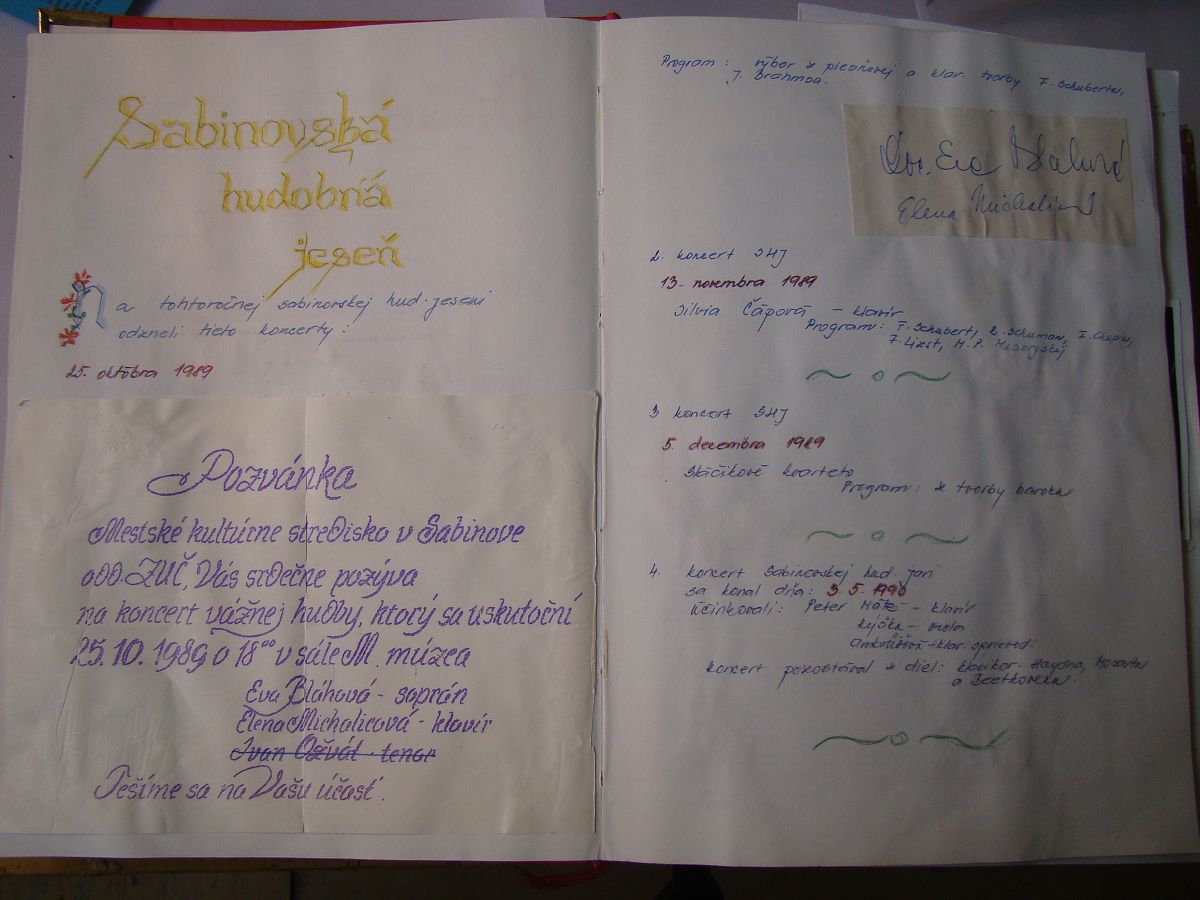 Sabinovská
hudobná
jeseň
Na tohtoročnej sabinovskej hud. jeseni
odzneli tieto koncerty:
25. októbra 1989
Pozvánka
Mestské kultúrne stredisko v Sabinove
odd. ZUČ, Vás srdečne pozýva
na koncert vážnej hudby, ktorý sa uskutoční
25.10.1989 o 18⁰⁰ v sále M. múzea
Eva Bláhová - soprán
Elena Michalicová - klavír
Ivan Ožvát - tenor
Tešíme sa na Vašu účasť.
Program: výber z piesňovej a klav. tvorby F. Schuberta,
J. Brahmsa.
Eva Blahová
Elena Michalicová
2. koncert SHJ
13. novembra 1989
Silvia Čápová - klavír
Program: F. Schubert, R. Schuman, F. Chopin,
F. Liszt, M. P. Musorgskij
3 koncert SHJ
5. decembra 1989
Sláčikové kvarteto
Program: z tvorby baroka
4. koncert Sabinovskej hud. jari
sa konal dňa: 3. 5. 1990
Účinkovali: Peter - klavír
- viola
- klav. sprievod.
koncert pozostával z diel: klasikov Haydna, Mozarta
a Beethovena.